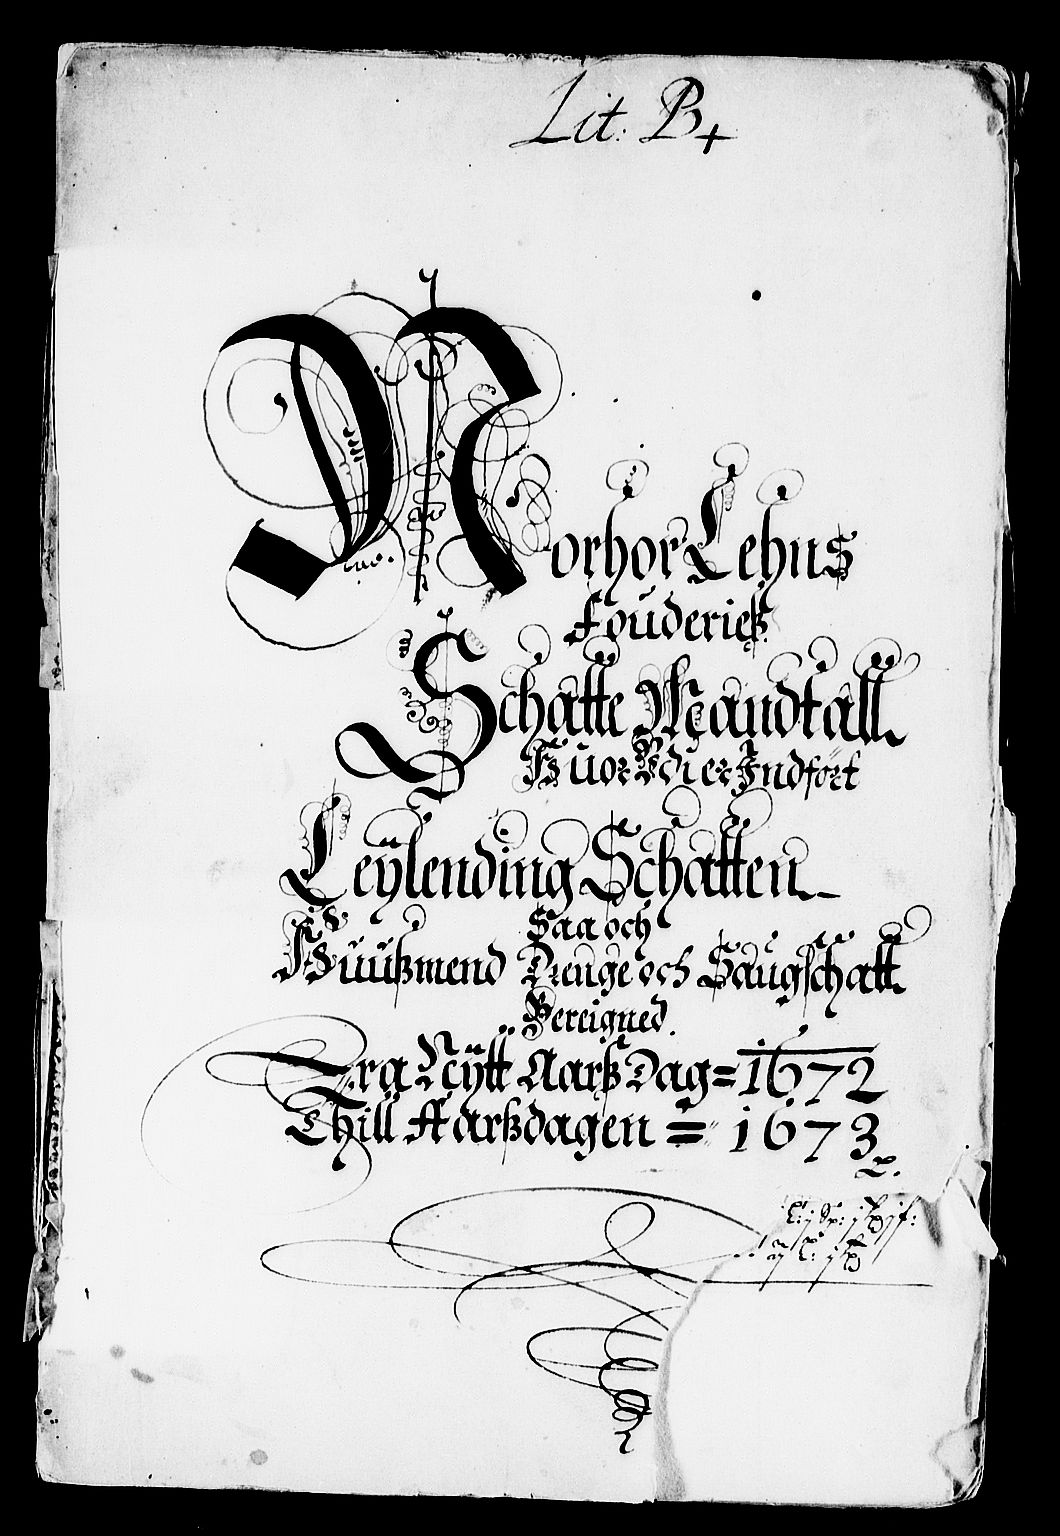 Lit: B+
Norhor Lehns
Fouderieß
Schatte Mandtall
Huor Vdi er Indført
Leÿlending Schatten
Saa och
Huußmend Drenge och Saugschatt
Bereigned.
Fra Nÿtt Aarß Dag = 1672
Thill Aarßdagen = 1673